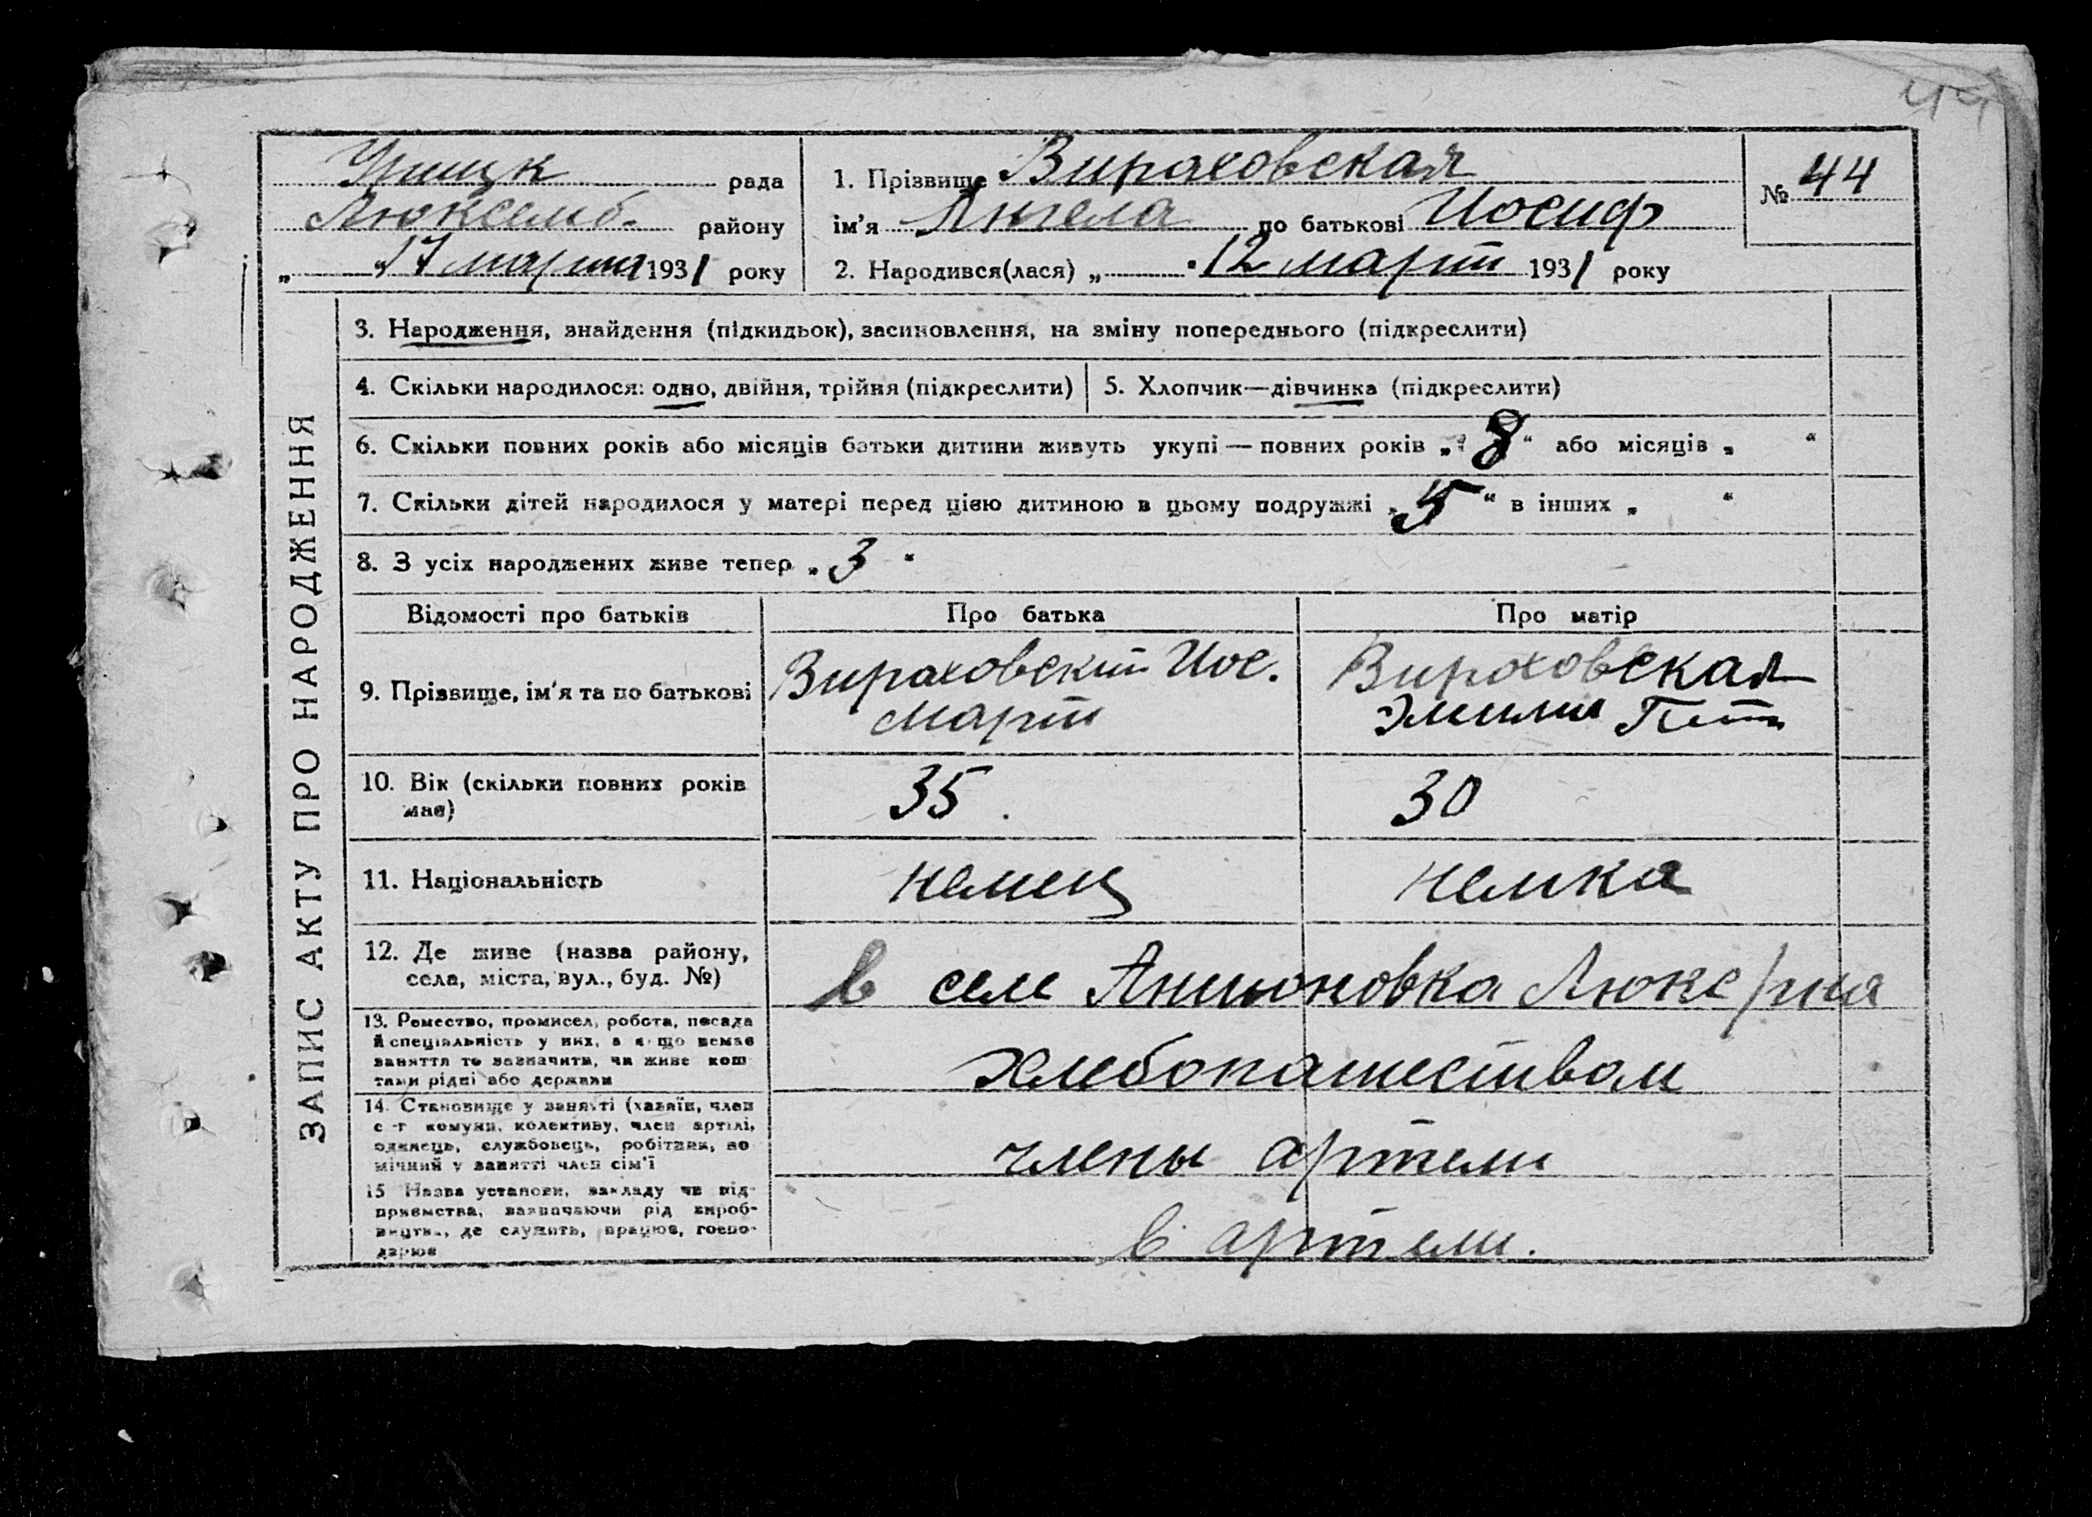 44
Урицк рада
Люксемб. району
„ “ 17 марта 1931 року
1. Прізвище Вираховская
ім'я Ангела по батькові Иосиф
2. Народився(лася) „ 12 март 1931 року
№ 44
ЗАПИС АКТУ ПРО НАРОДЖЕННЯ
3. Народження, знайдення (підкидьок), засиновлення, на зміну попереднього (підкреслити)
4. Скільки народилося: одно, двійня, трійня (підкреслити)
5. Хлопчик—дівчинка (підкреслити)
6. Скільки повних років або місяців батьки дитини живуть укупі — повних років „ 8 “ або місяців „ “
7. Скільки дітей народилося у матері перед цією дитиною в цьому подружжі „ 5 “ в інших „ “
8. З усіх народжених живе тепер „ 3 “
Відомості про батьків Про батька Про матір
9. Прізвище, ім'я та по батькові
Вираховский Иос.
март
Вираховская
Эмилия Пет
10. Вік (скільки повних років
має)
35. 30
11. Національність немец немка
12. Де живе (назва району,
села, міста, вул., буд. №)
в селе Антоновка Люкс/рна
13. Ремество, промисел, робота, посада
й спеціяльність у них, а якщо немає
заняття то зазначити, чи живе кош
тами рідні або держави
хлебопашеством
14. Становище у занятті (хазяїн, член
с-г комуни, колективу, член артілі,
одинець, службовець, робітник, по
мічний у занятті член сім'ї
члены артели
15 Назва установи, закладу чи під-
приємства, зазначаючи рід вироб-
ництва, де служить, працює, госпо-
дарює
в артели.